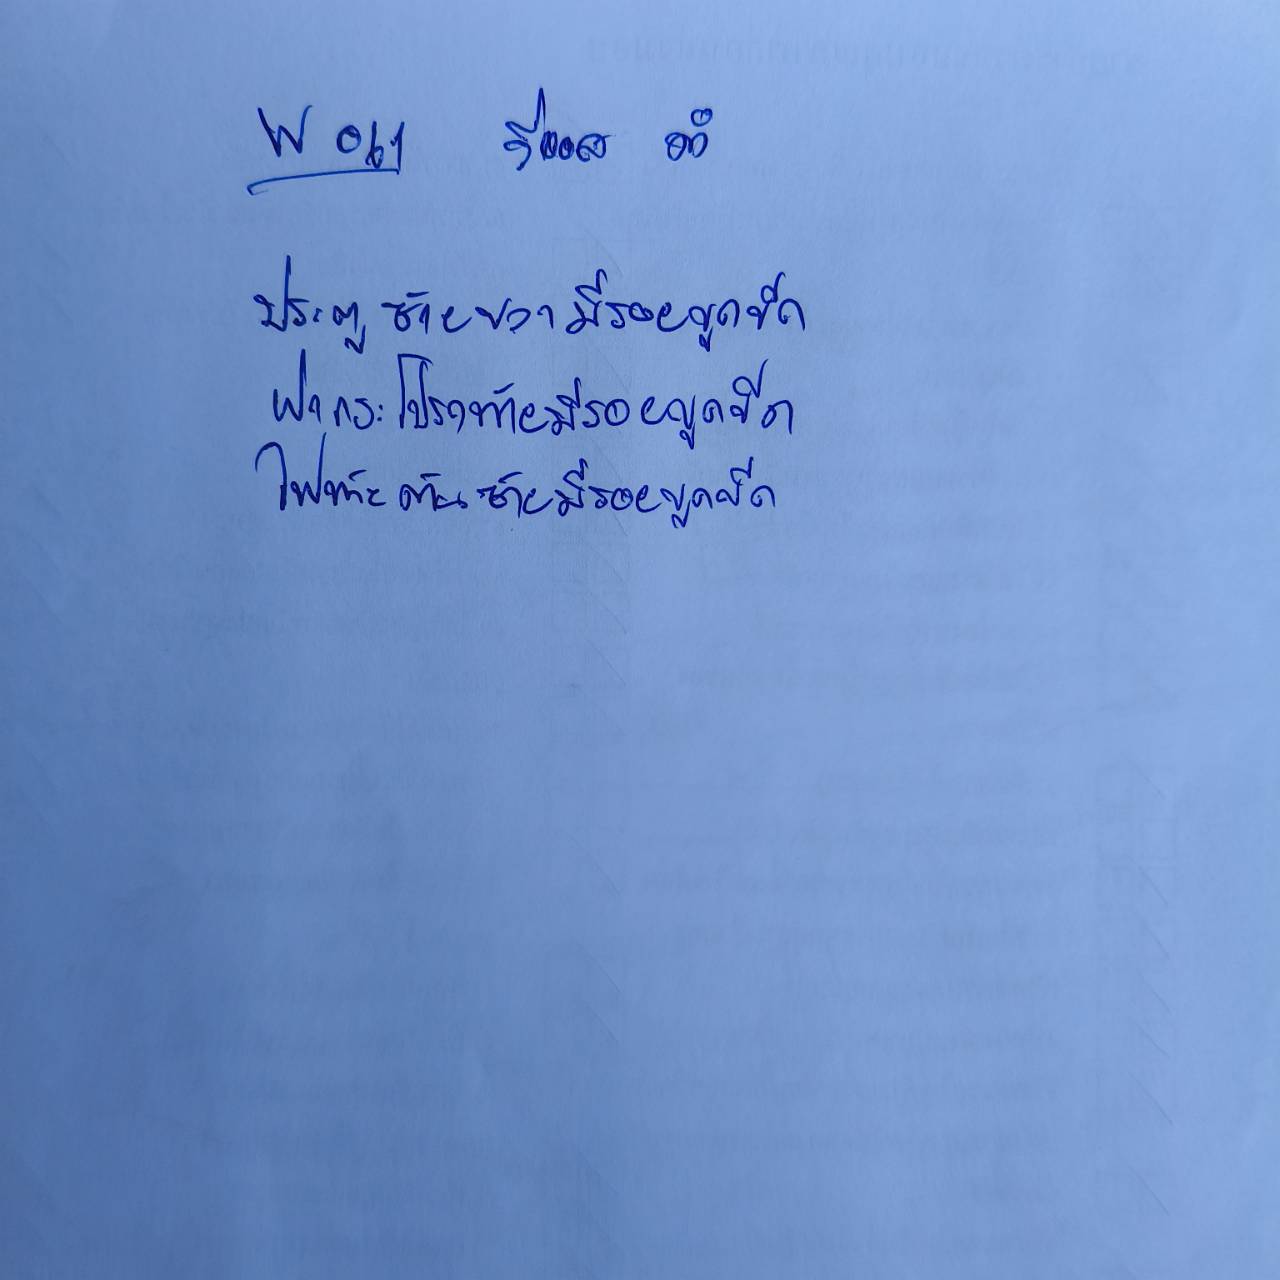 W 061 วีออส ดำ
ประตู ซ้ายขวา มีรอยขูดขีด
ฝากระโปรงท้ายมีรอยขูดขีด
ไฟท้าย ด้าน ซ้ายมีรอยขูดขีด